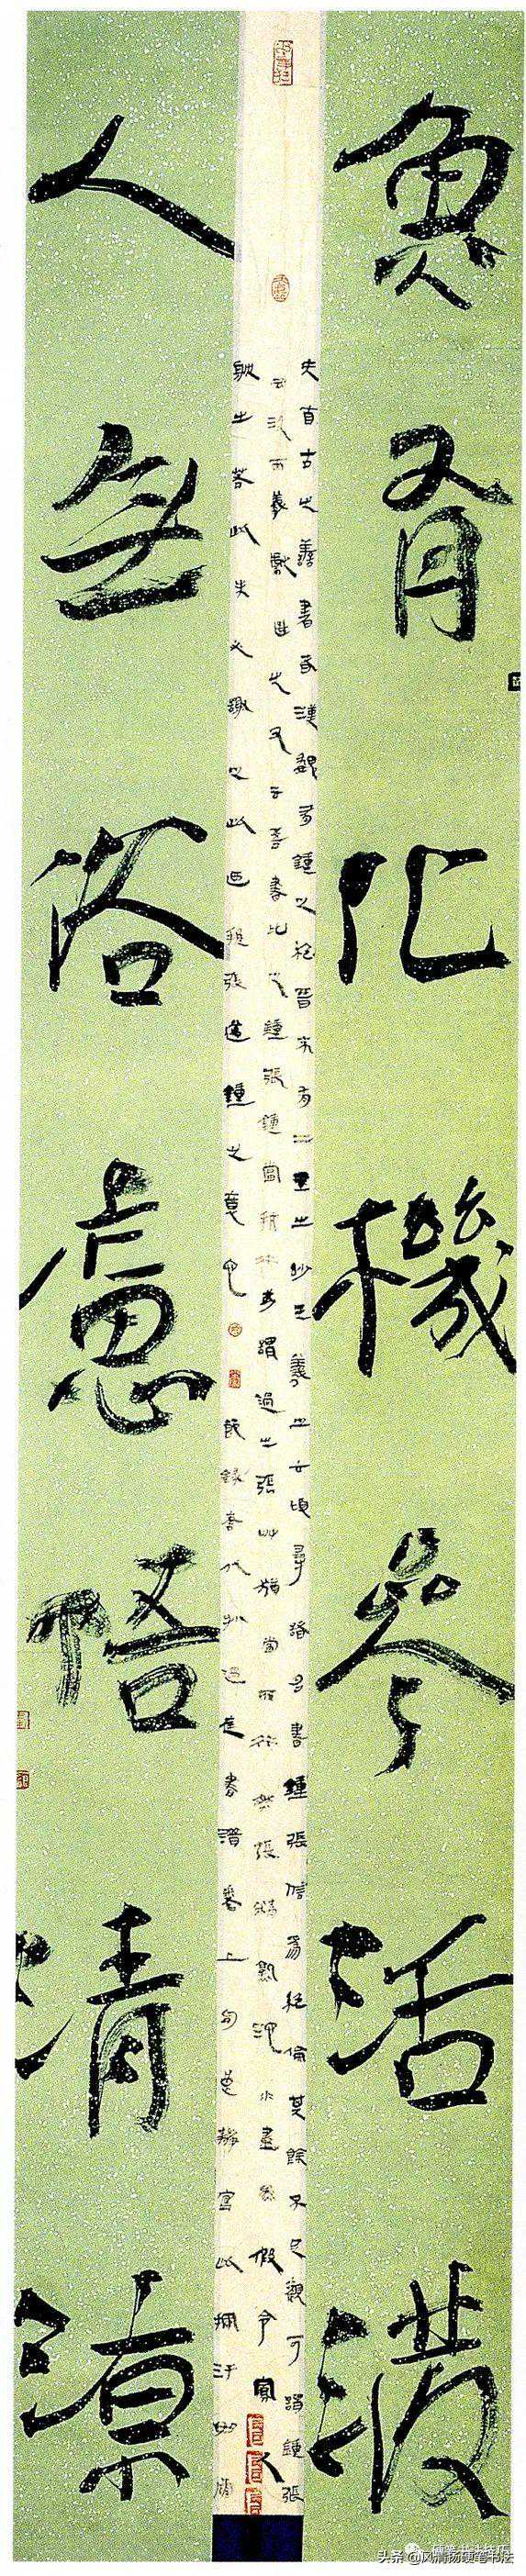 魚有化機參活潑
夫自古之善書者漢魏有鍾之絕晉末有二王之妙王羲之云頃尋諸名書鍾張信為絕倫其餘不足觀可謂鍾張
云沒而羲獻繼之又云吾書比之鍾張鍾當抗行或謂過之張草猶當雁行然張精熟池水盡墨假令寡人
耽之若此未必謝之此乃推張邁鍾之意也 節錄唐代孫過庭書譜
人無俗慮悟清涼
头条 @风清扬硬笔书法